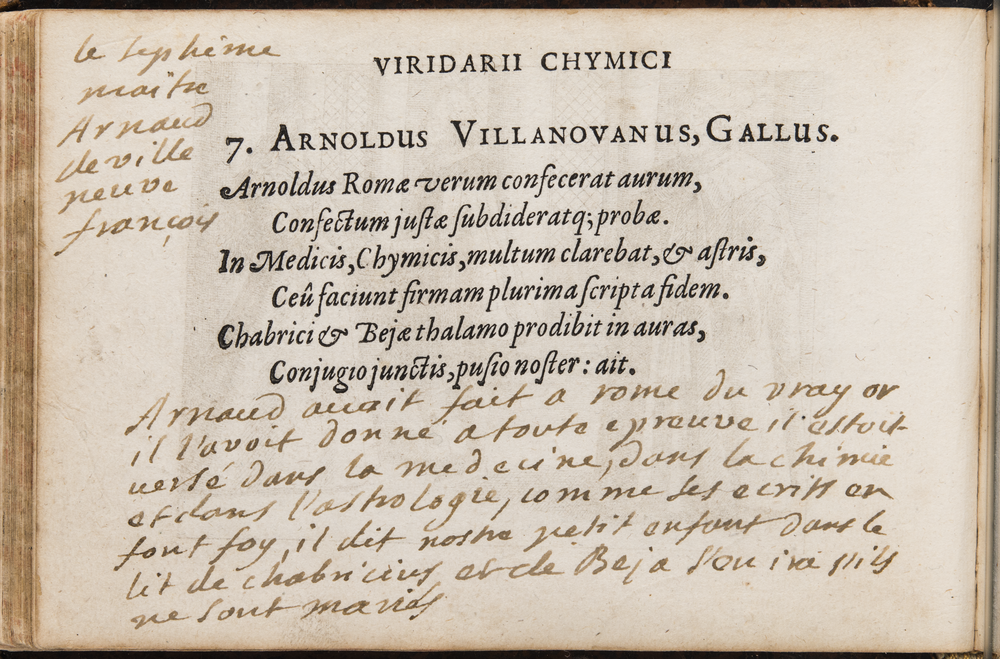 le septiéme
maitre
Arnaud
de ville
neuve
françois
VIRIDARII CHYMICI
7. ARNOLDUS VILLANOVANUS, GALLUS.
Arnoldus Romæ verum confecerat aurum,
Confectum juſtæ ſubdideratq; probæ.
In Medicis, Chymicis, multum clarebat, & aſtris,
Ceû faciunt firmam plurima ſcripta fidem.
Chabrici & Bejæ thalamo prodibit in auras,
Conjugio junctis, puſio noſter: ait.
Arnaud avait fait a rome du vray or
il l'avoit donné a toute epreuve il estoit
versé dans la medecine, dans la chimie
et dans l'astrologie, comme ses ecrits en
font foy, il dit nostre petit enfant dans le
lit de chabricius et de Beja s'en ira s'ils
ne sont mariés